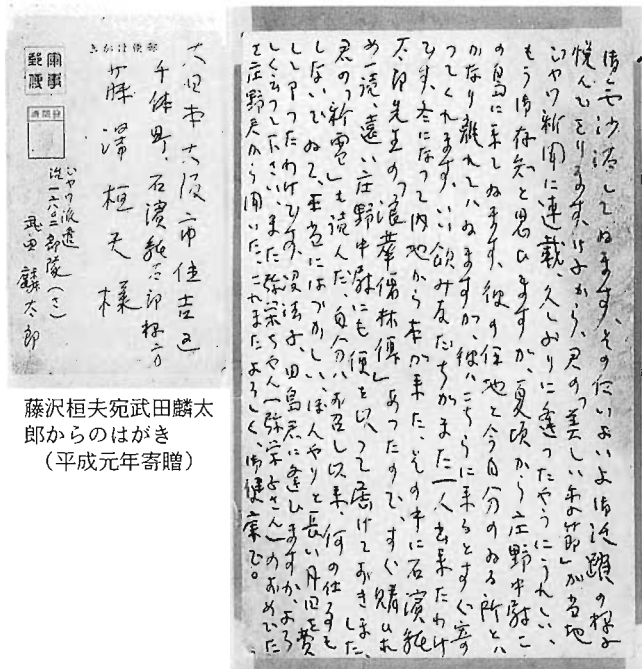 郵便はがき
軍事
郵便
検閲済
大日本大阪市住吉区
千体町、石濱純太郎様方
藤澤桓夫様
じやわ派遣
治一六〇二部隊(さ)
武田麟太郎
藤沢桓夫宛武田麟太
郎からのはがき
(平成元年寄贈)
御無沙汰してゐます、その后いよいよ御活躍の様子
悦んでをります、けふから、君の「美しい季節」が当地
じやわ新聞に連載、久しぶりに逢つたやうにうれしい、
もう御存知と思ひますが、夏頃から庄野中尉こ
の島に来てゐます、彼の任地と今自分のゐる所とは
かなり離れてはゐますが、彼はこちらに来るとすぐ寄
つてくれます、いい飲み友だちがまた一人出来たわけ
です、冬になつて内地から本が来た、その中に石濱純
太郎先生の「浪華儒林傳」あつたので、すぐ購ひ求
め一読、遠い庄野中尉にも便を以つて届けておきました、
君の「新雪」も読んだ、自分は応召し以来、何の仕事も
しないでゐて、本当にはづかしい、ぼんやりと長い月日を費
してしまつたわけです、沒法子、田島君に逢ひますか、よろ
しく云つて下さい、また弥栄ちやん(弥栄子さん)のおめでた
を庄野君から聞いた、これまたよろしく、御健康で。